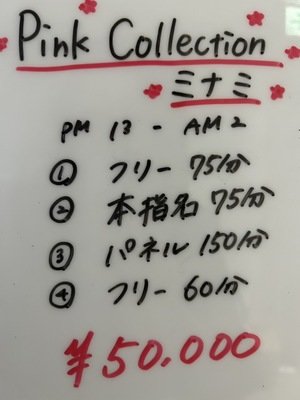 Pink Collection
ミナミ
PM 13 - AM2
① フリー 75分
② 本指名 75分
③ パネル 150分
④ フリー 60分
¥50.000